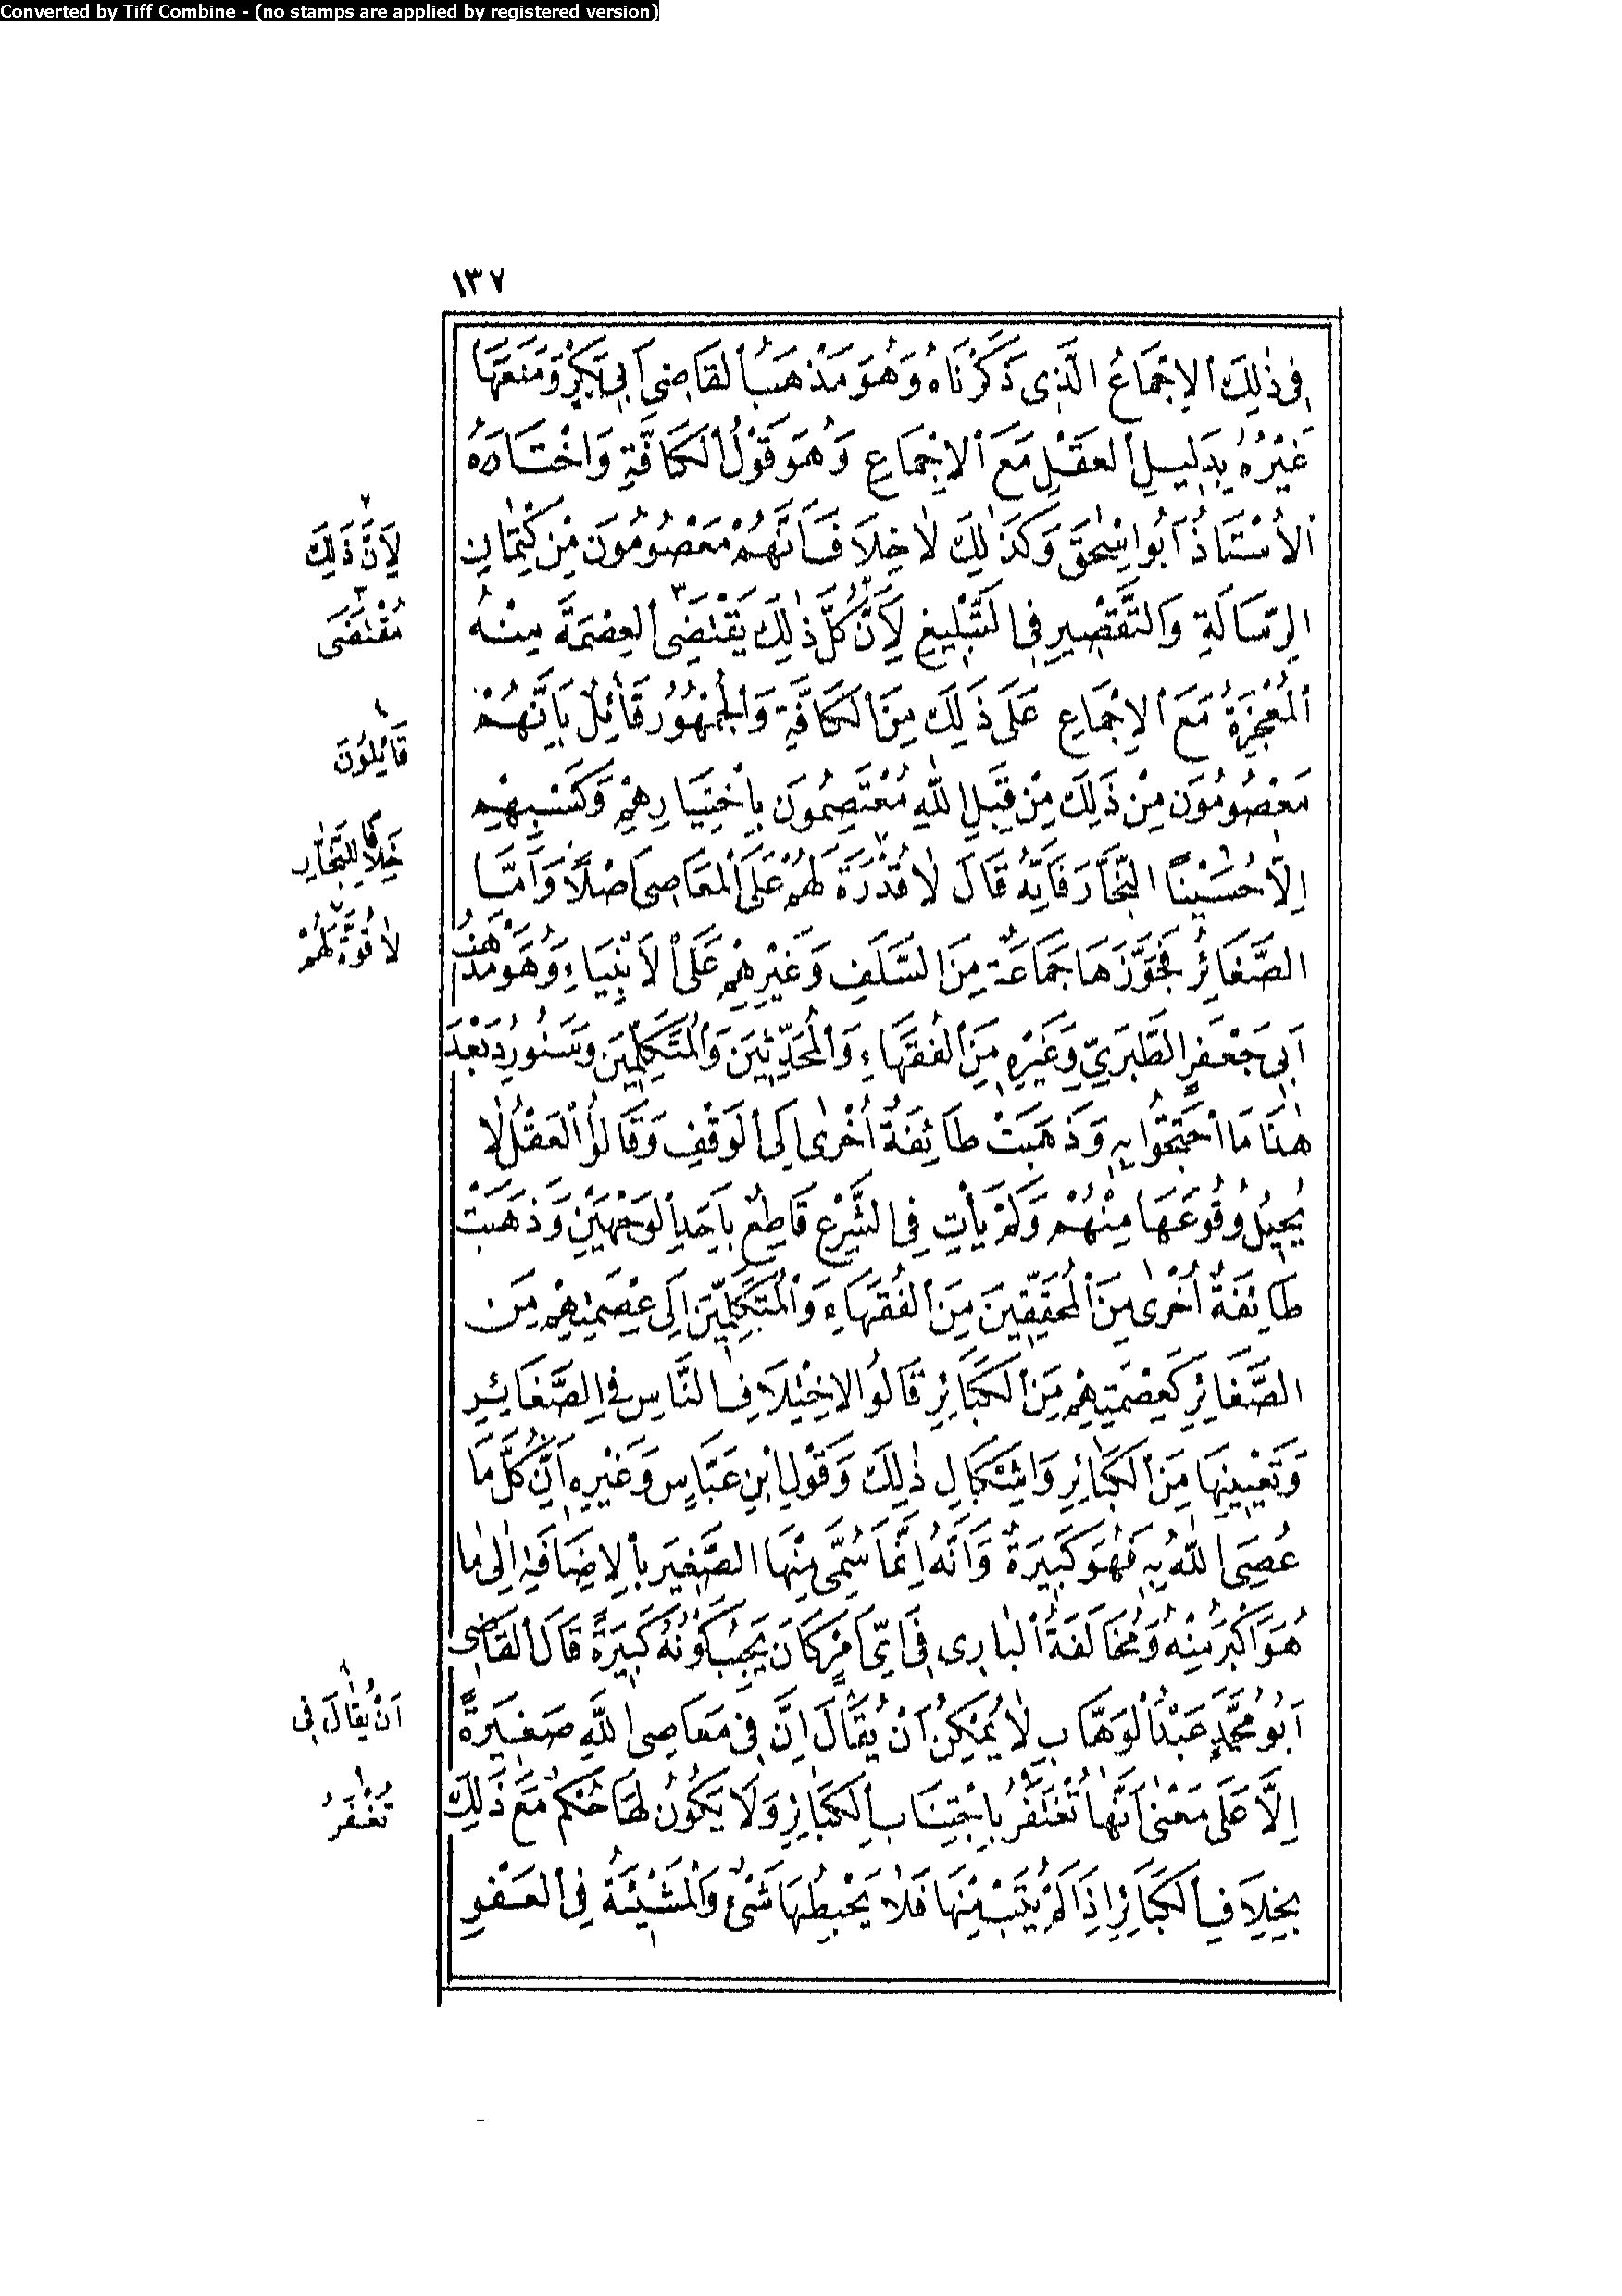 Converted by Tiff Combine - (no stamps are applied by registered version)
١٣٧
فِى ذٰلِكَ الْاِجْمَاعُ الَّذِى ذَكَرْنَاهُ وَهُوَ مَذْهَبُ الْقَاضِى اَبِى بَكْرٍ وَمَنَعَهَا
غَيْرُهُ بِدَلِيلِ الْعَقْلِ مَعَ الْاِجْمَاعِ وَهُوَ قَوْلُ الْكَافَّةِ وَاخْتَارَهُ
الْاُسْتَاذُ اَبُو اِسْحٰقَ وَكَذٰلِكَ لَا خِلَافَ اَنَّهُمْ مَعْصُومُونَ مِنْ كِتْمَانِ
الرِّسَالَةِ وَالتَّقْصِيرِ فِى التَّبْلِيغِ لِاَنَّ كُلَّ ذٰلِكَ يَقْتَضِى الْعِصْمَةَ مِنْهُ
الْمُعْجِزَةُ مَعَ الْاِجْمَاعِ عَلَى ذٰلِكَ مِنَ الْكَافَّةِ وَالْجُمْهُورُ قَائِلٌ بِاَنَّهُمْ
مَعْصُومُونَ مِنْ ذٰلِكَ مِنْ قِبَلِ اللّٰهِ مُعْتَصِمُونَ بِاخْتِيَارِهِمْ وَكَسْبِهِمْ
اِلَّا حُسَيْنًا النَّجَّارَ فَاِنَّهُ قَالَ لَا قُدْرَةَ لَهُمْ عَلَى الْمَعَاصِى اَصْلًا وَاَمَّا
الصَّغَائِرُ فَجَوَّزَهَا جَمَاعَةٌ مِنَ السَّلَفِ وَغَيْرِهِمْ عَلَى الْاَنْبِيَاءِ وَهُوَ مَذْهَبُ
اَبِى جَعْفَرٍ الطَّبَرِيِّ وَغَيْرِهِ مِنَ الْفُقَهَاءِ وَالْمُحَدِّثِينَ وَالْمُتَكَلِّمِينَ وَسَنُورِدُ بَعْدَ
هٰذَا مَا احْتَجُّوا بِهِ وَذَهَبَتْ طَائِفَةٌ اُخْرٰى اِلَى الْوَقْفِ وَقَالُوا الْعَقْلُ لَا
يُحِيلُ وُقُوعَهَا مِنْهُمْ وَلَمْ يَأْتِ فِى الشَّرْعِ قَاطِعٌ بِاَحَدِ الْوَجْهَيْنِ وَذَهَبَتْ
طَائِفَةٌ اُخْرٰى مِنَ الْمُحَقِّقِينَ مِنَ الْفُقَهَاءِ وَالْمُتَكَلِّمِينَ اِلَى عِصْمَتِهِمْ مِنَ
الصَّغَائِرِ كَعِصْمَتِهِمْ مِنَ الْكَبَائِرِ قَالُوا لِاخْتِلَافِ النَّاسِ فِى الصَّغَائِرِ
وَتَعْيِينِهَا مِنَ الْكَبَائِرِ وَاِشْكَالِ ذٰلِكَ وَقَوْلِ ابْنِ عَبَّاسٍ وَغَيْرِهِ اِنَّ كُلَّ مَا
عُصِىَ اللّٰهُ بِهِ فَهُوَ كَبِيرَةٌ وَاَنَّهُ اِنَّمَا سُمِّىَ مِنْهَا الصَّغِيرَ بِالْاِضَافَةِ اِلٰى مَا
هُوَ اَكْبَرُ مِنْهُ وَمُخَالَفَةُ الْبَارِى فِى اَىِّ اَمْرٍ كَانَ يَجِبُ كَوْنُهُ كَبِيرَةً قَالَ الْقَاضِى
اَبُو مُحَمَّدٍ عَبْدُ الْوَهَّابِ لَا يُمْكِنُ اَنْ يُقَالَ اِنَّ فِى مَعَاصِى اللّٰهِ صَغِيرَةً
اِلَّا عَلَى مَعْنَى اَنَّهَا تُغْتَفَرُ بِاجْتِنَابِ الْكَبَائِرِ وَلَا يَكُونُ لَهَا حُكْمٌ مَعَ ذٰلِكَ
بِخِلَافِ الْكَبَائِرِ اِذَا لَمْ يُتَبْ مِنْهَا فَلَا يُحْبِطُهَا شَىْءٌ وَالْمَشِيئَةُ فِى الْعَفْوِ
٢
لِاَنَّ ذٰلِكَ
٣
مُقْتَضَى
٤
قَائِلُونَ
خِلَافًا لِلنَّجَّارِ
٧
لَا قُوَّةَ لَهُمْ
٨
اَنْ يُقَالَ فِى
٩
تُغْفَرُ